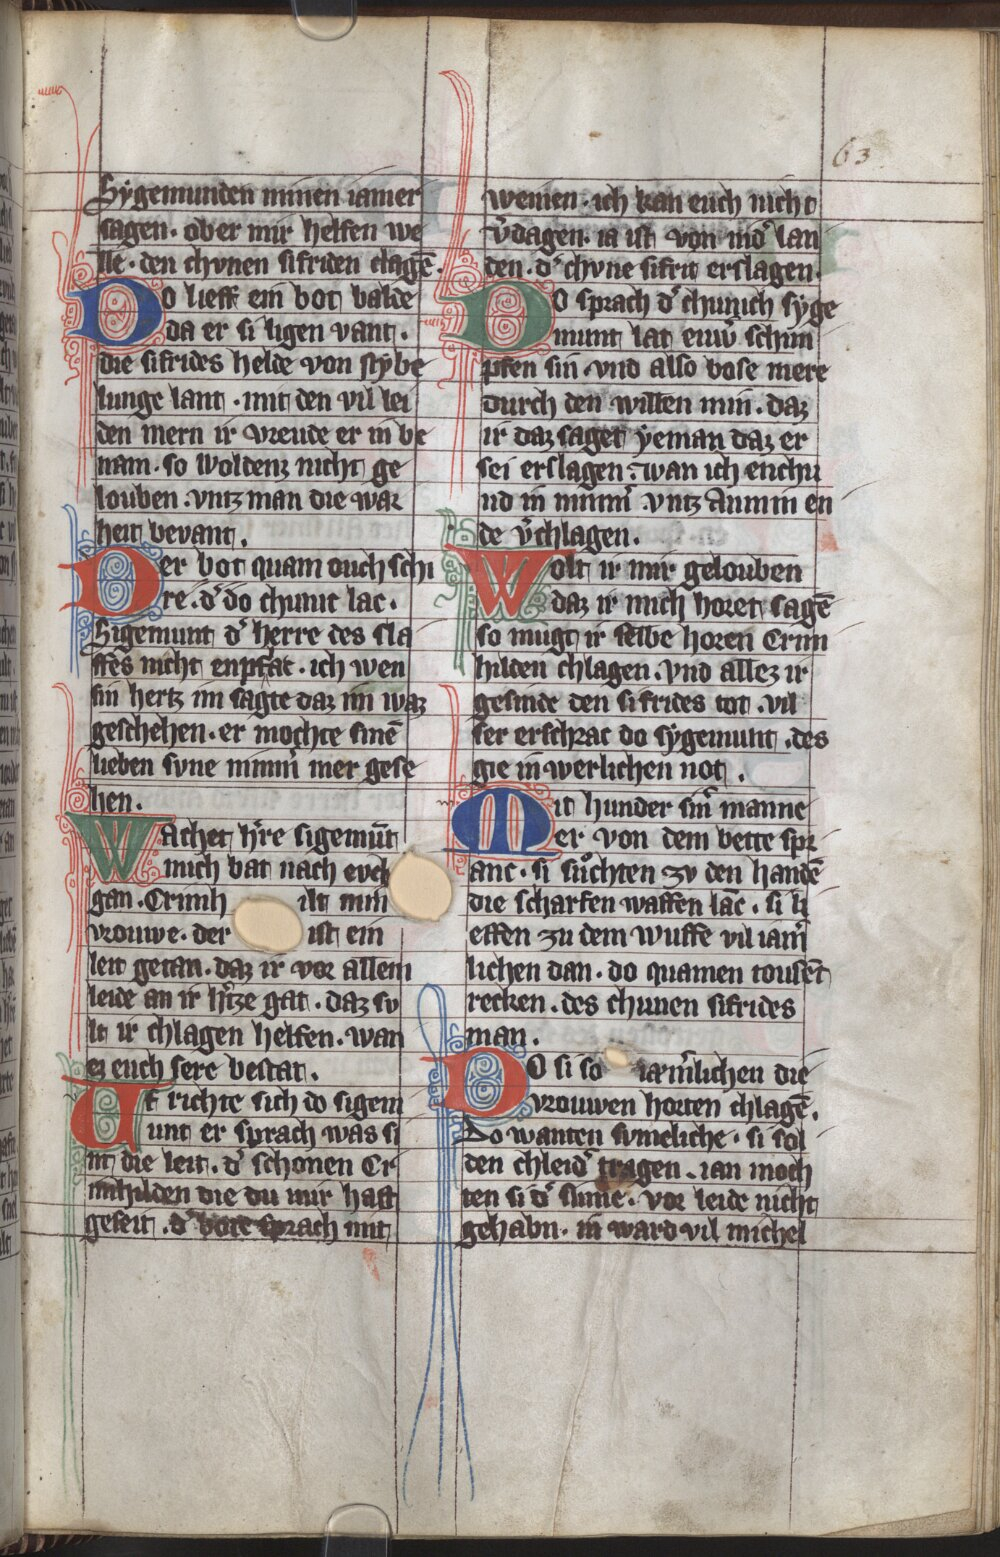 63
Sygemunden minen iamer
sagen. ober mir helfen we
lle. den chvnen sifriden clagē.
Do lieff ein bot balde
da er si ligen vant.
die sifrides helde von nybe
lunge lant. mit den vil lei
den mern ir vreude er in be
nam. so woldenz nicht ge
louben. vntz man die war
heit bevant.
Der bot quam ouch schi
re. d' do chunic lac.
Sigemunt d' herre des sla
ffes nicht enpflac. ich wen
sin hertz im sagte daz im waz
geschehen. er mochte sinē
lieben svne nimm' mer gese
hen.
Wachet h're sigemūt
mich bat nach evch
gan. Crimh ilt min
vrouwe. der ist ein
leit getan. daz ir vor allem
leide an ir h'tze gat. daz sv
lt ir chlagen helfen. wan
ez euch sere bestat.
Uf richte sich do sigem
unt er sprach was si
nt die leit. d' schonen Cr
imhilden die du mir hast
geseit. d' bote sprach mit
weinen. ich kan euch nicht
v'dagen. ia ist von nid' lan
den. d' chvne sifrit erslagen.
Do sprach d' chunich syge
munt lat euw' schim
pfen sin. vnd also bose mere
durch den willen min. daz
ir daz saget yeman daz er
sei erslagen. wan ich enchu
nd in nimm' vntz an min en
de v'chlagen.
Wolt ir mir gelouben
daz ir mich horet sagē
so mugt ir selbe horen Crim
hilden chlagen. vnd allez ir
gesinde den sifrides tot. vil
ser erschrac do sygemunt. des
gie in werlichen not.
Mit hunder sin' manne
er von dem bette spr
anc. si sůchten zv den handē
die scharfen waffen lāc. si li
effen zu dem wuffe vil iam'
lichen dan. do quamen tousēt
recken. des chunen sifrides
man.
Do si so iam'lichen die
vrouwen horten chlagē.
Do wanten svmeliche. si sol
den chleid' tragen. ian moch
ten si d' sinne. vor leide nicht
gehabn. in ward vil michel